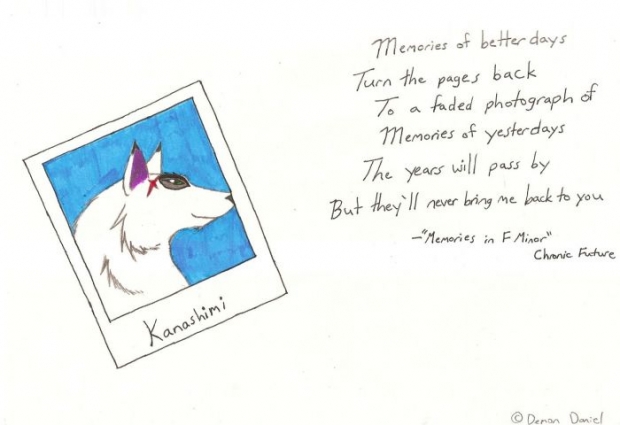 Memories of better days
Turn the pages back
To a faded photograph of
Memories of yesterdays
The years will pass by
But they'll never bring me back to you
-"Memories in F Minor"
Chronic Future
Kanashimi
© Demon Daniel